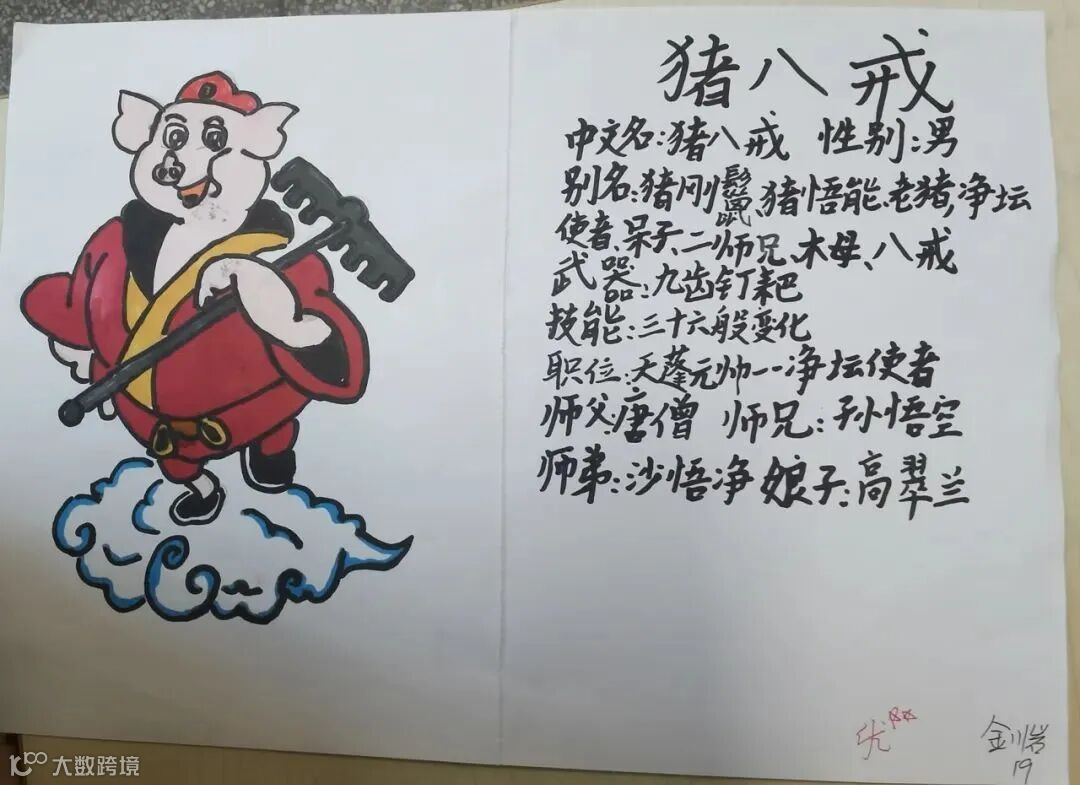 猪八戒
中文名:猪八戒 性别:男
别名:猪刚鬣、猪悟能、老猪,净坛
使者、呆子、二师兄、木母、八戒
武器:九齿钉耙
技能:三十六般变化
职位:天蓬元帅--净坛使者
师父:唐僧 师兄:孙悟空
师弟:沙悟净 娘子:高翠兰
优
19
大数跨境